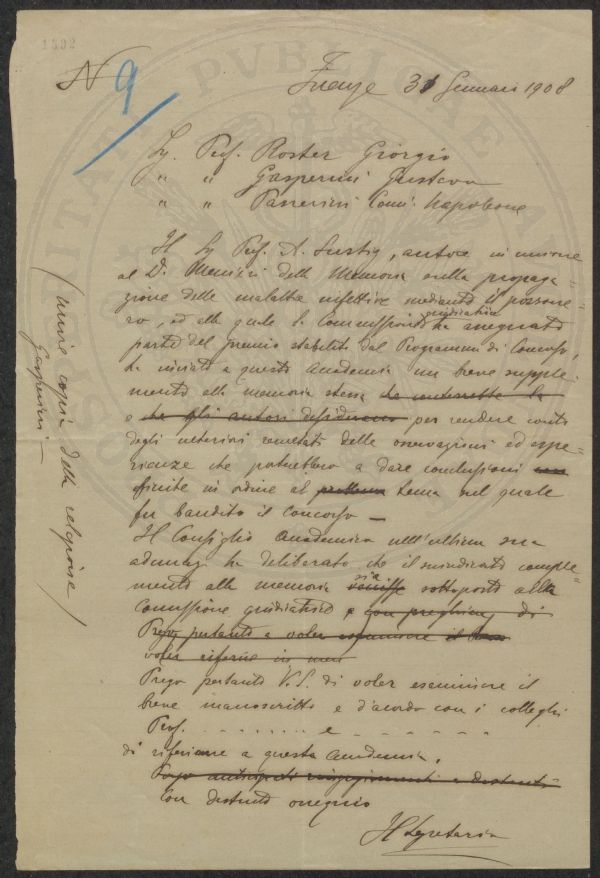 1392
N 9
Firenze 31 Gennaio 1908
Sg. Prof. Roster Giorgio
" " Gasperini Gustavo
" " Passerini Conte Napoleone
Il Sg Prof. A. Lustig, autore in unione
al D. della Memoria sulla propaga
zione delle malattie infettive mediante il pozzo ne
ro, ed alla quale la Commissione giudicatrice ha assegnato
parte del premio stabilito dal Programma di Concorso,
ha inviato a questa Accademia un breve supple-
mento alla memoria stessa
e per rendere conto
degli ulteriori resultati delle osservazioni ed espe-
rienze che potrebbero a dare conclusioni
finite in ordine al tema sul quale
fu bandito il concorso —
Il Consiglio Accademico nell'ultima sua
adunaz. ha deliberato che il suindicato comple=
mento alla memoria sia sottoposto alla
Commissione giudicatrice e con preghiera di
Prego pertanto a voler esaminare il
voler riferire in
Prego pertanto V.S. di voler esaminare il
breve manoscritto e d'accordo con i colleghi
Prof. . . . . . . . . e . . . . . . .
di riferirne a questa Accademia.
Con distinto ossequio
Il Segretario
(unire copia della relazione)
Gasperini —